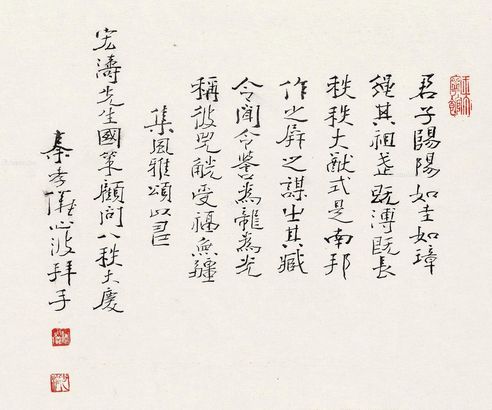 君子陽陽如圭如璋
繩其祖武既溥既長
秩秩大猷式是南邦
作之屏之謀之其臧
令聞令譽為龍為光
稱彼兕觥受福無疆
集風雅頌以
宏濤先生國策顧問八秩大慶
秦孝儀心波拜手